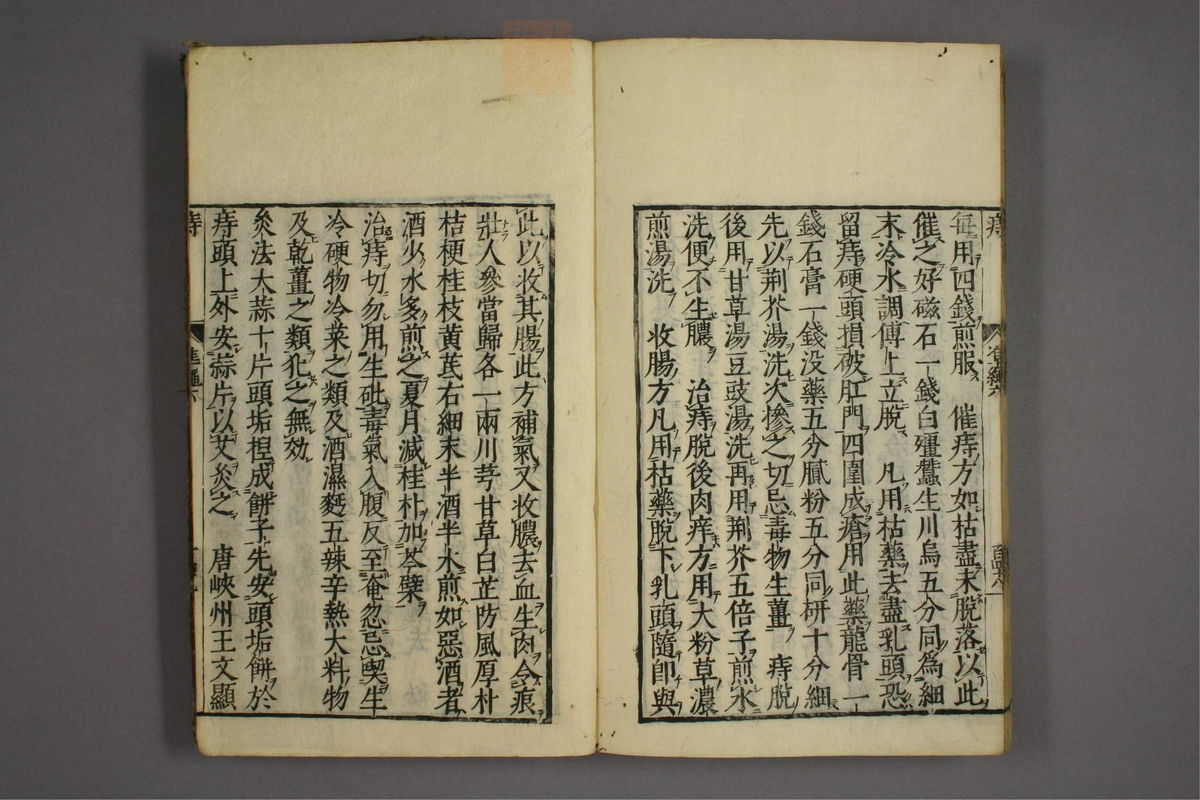 每用四錢煎服　催痔方如枯盡未脫落以此
催之好磁石一錢白殭蠶生川烏五分同爲細
末冷水調傅上立脫　凡用枯藥去盡乳頭恐
留痔硬頭損破肛門四圍成瘡用此藥龍骨一
錢石膏一錢没藥五分膩粉五分同研十分細
先以荆芥湯洗次慘之切忌毒物生薑　痔脫
後用甘草湯豆豉湯洗再用荆芥五倍子煎水
洗便不生膿　治痔脫後肉痒方用大粉草濃
煎湯洗　收腸方凡用枯藥脫下乳頭隨卽與
此以收其腸此方補氣又收膿去血生肉合痕
壯人參當歸各一兩川芎甘草白芷防風厚朴
桔梗桂枝黃芪右細末半酒半水煎如惡酒者
酒少水多煎之夏月減桂朴加芩檗
治痔切勿用生砒毒氣入腹反至奄忽忌喫生
冷硬物冷菜之類及酒濕麪五辣辛熱大料物
及乾薑之類犯之無効
灸法大蒜十片頭垢揑成餅子先安頭垢餅於
痔頭上外安蒜片以艾灸之　唐峽州王文顯
痔